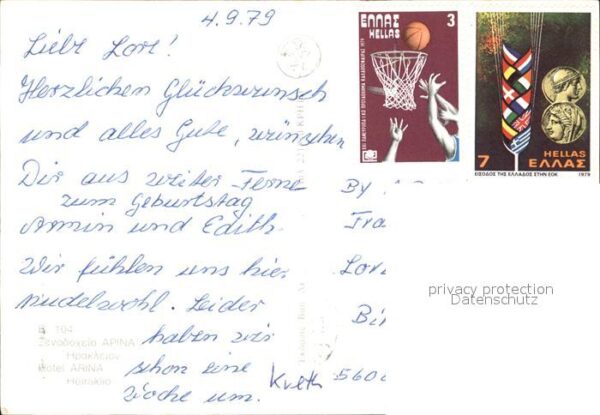 4.9.79
Liebe Lore!
Herzlichen Glückwunsch
und alles Gute, wünschen
Dir aus weiter Ferne
zum Geburtstag
Armin und Edith.
Wir fühlen uns hier
nudelwohl. Leider
haben wir
schon eine
Woche um.
B. 104
Ξενοδοχείο ΑΡΙΝΑ
Ηράκλειον
Hotel ARINA
Heraklio
ΕΛΛΑΣ
HELLAS
3
7
HELLAS
ΕΛΛΑΣ
ΕΙΣΟΔΟΣ ΤΗΣ ΕΛΛΑΔΟΣ ΣΤΗΝ ΕΟΚ
1979
By
Lor
560
privacy protection
Datenschutz